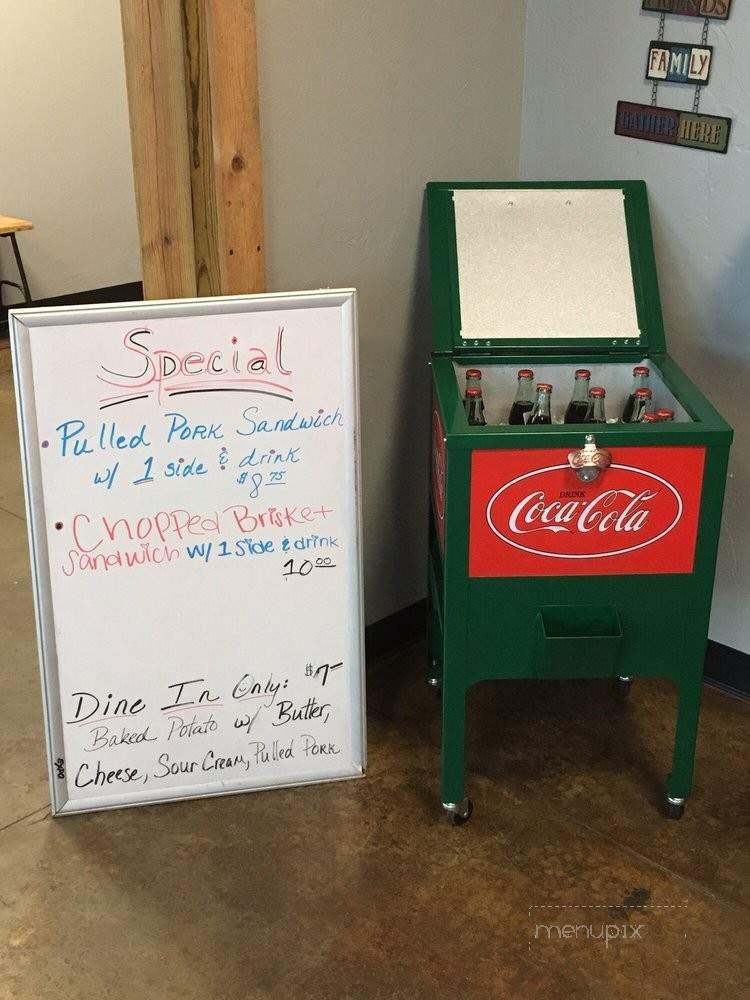 FRIENDS
FAMILY
GATHER HERE
Special
• Pulled Pork Sandwich
w/ 1 side & drink
$8.75
• Chopped Brisket
Sandwich w/ 1 Side & drink
10.00
Dine In Only: $7-
Baked Potato w/ Butter,
Cheese, Sour Cream, Pulled Pork
EXPO
DRINK
Coca-Cola
menupix